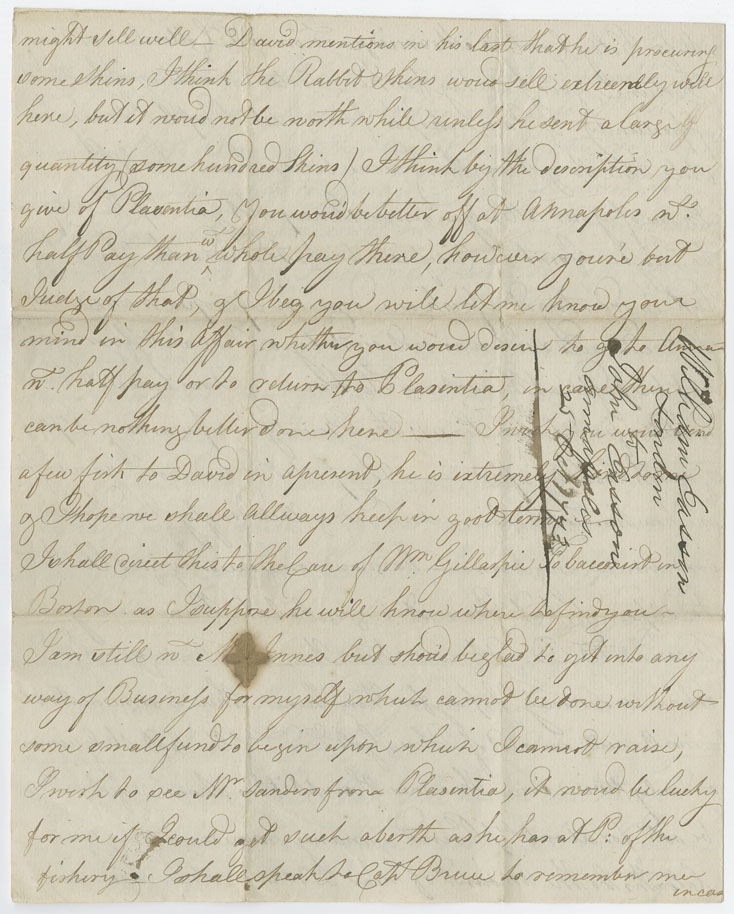 might sell well — David mentions in his last that he is procuring
some skins, I think the Rabbit skins woud sell extreemly well
here, but it woud not be worth while unless he sent a large
quantity (some hundred skins) I think by the description you
give of Plasentia, you woud be better off at Annapolis wt.
half Pay than wt. whole pay there, however you're best
Judge of that, & I beg you will let me know your
mind in this affair whether you woud desire to go to Anna
wt. half pay or to return to Plasintia, in case there
can be nothing better done here — I wish you woud send
a few fish to David in a present, he is extremely
& I hope we shall allways keep in good terms
I shall direct this to the Care of Wm Gillaspie Tobacconist in
Boston as I suppose he will know where to find you —
I am still wt. Mr. Innes but shoud be glad to get into any
way of Business for myself which cannot be done without
some small fund to begin upon which I cannot raise,
I wish to see Mr. Sanders from Plasintia, it woud be lucky
for me if I coud get such a berth as he has at P: of the
fishery — I shall speak to Capt Bruce to remember me
in case
William Casson
London
to
John Casson
Annapolis
25 1743